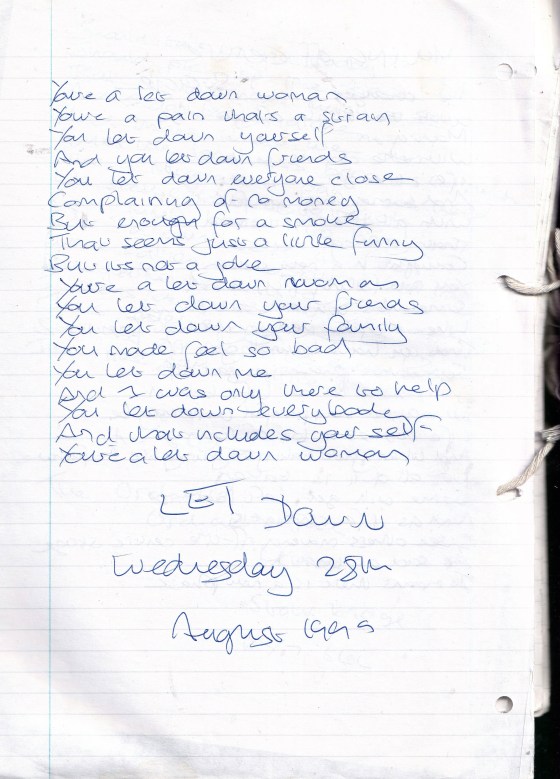 You're a let down woman
You're a pain that's a strain
You let down yourself
And you let down friends
You let down everyone close
Complaining of no money
But enough for a smoke
That seems just a little funny
But its not a joke
You're a let down woman
You let down your friends
You let down your family
You made feel so bad
You let down me
And I was only there to help
You let down everybody
And that includes yourself
You're a let down woman
LET Down
Wednesday 28th
August 1999